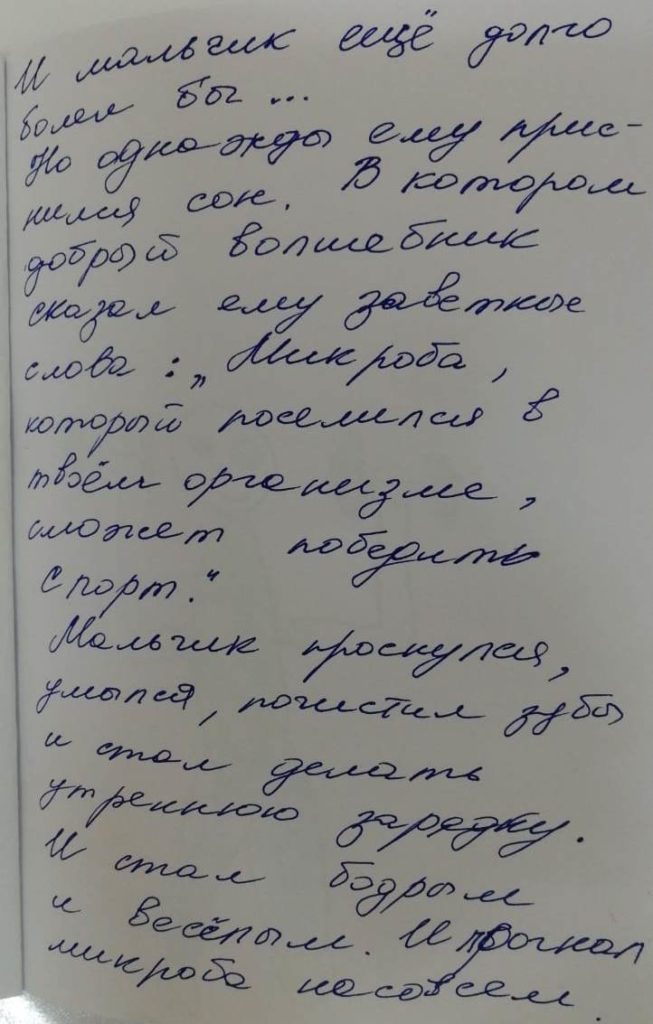 И мальчик ещё долго
болел бы...
Но однажды ему прис-
нился сон. В котором
добрый волшебник
сказал ему заветные
слова: „Микроба,
который поселился в
твоём организме,
сможет победить
спорт."
Мальчик проснулся,
умылся, почистил зубы
и стал делать
утреннюю зарядку.
И стал бодрым
и весёлым. И прогнал
микроба насовсем.